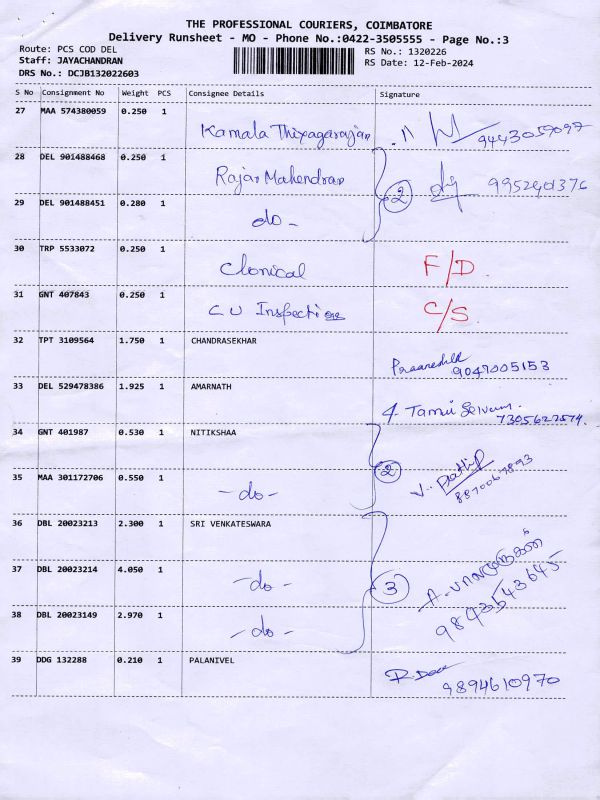 THE PROFESSIONAL COURIERS, COIMBATORE
Delivery Runsheet - MO - Phone No.:0422-3505555 - Page No.:3
Route: PCS COD DEL RS No.: 1320226
Staff: JAYACHANDRAN RS Date: 12-Feb-2024
DRS No.: DCJB132022603
S No Consignment No Weight PCS Consignee Details Signature
27 MAA 574380059 0.250 1 Kamala Thiyagarajan 9443057097
28 DEL 901488468 0.250 1 Rajan Mahendran 2 9952401376
29 DEL 901488451 0.280 1 do -
30 TRP 5533072 0.250 1 Clonical F/D.
31 GNT 407843 0.250 1 CU Inspection C/S.
32 TPT 3109564 1.750 1 CHANDRASEKHAR 9047005153
33 DEL 529478386 1.925 1 AMARNATH Tamil Selvam. 7305627574.
34 GNT 401987 0.530 1 NITIKSHAA 2
35 MAA 301172706 0.550 1 - do - 8870067893
36 DBL 20023213 2.300 1 SRI VENKATESWARA
37 DBL 20023214 4.050 1 - do - 3 9843543645
38 DBL 20023149 2.970 1 - do -
39 DDG 132288 0.210 1 PALANIVEL 9894610970